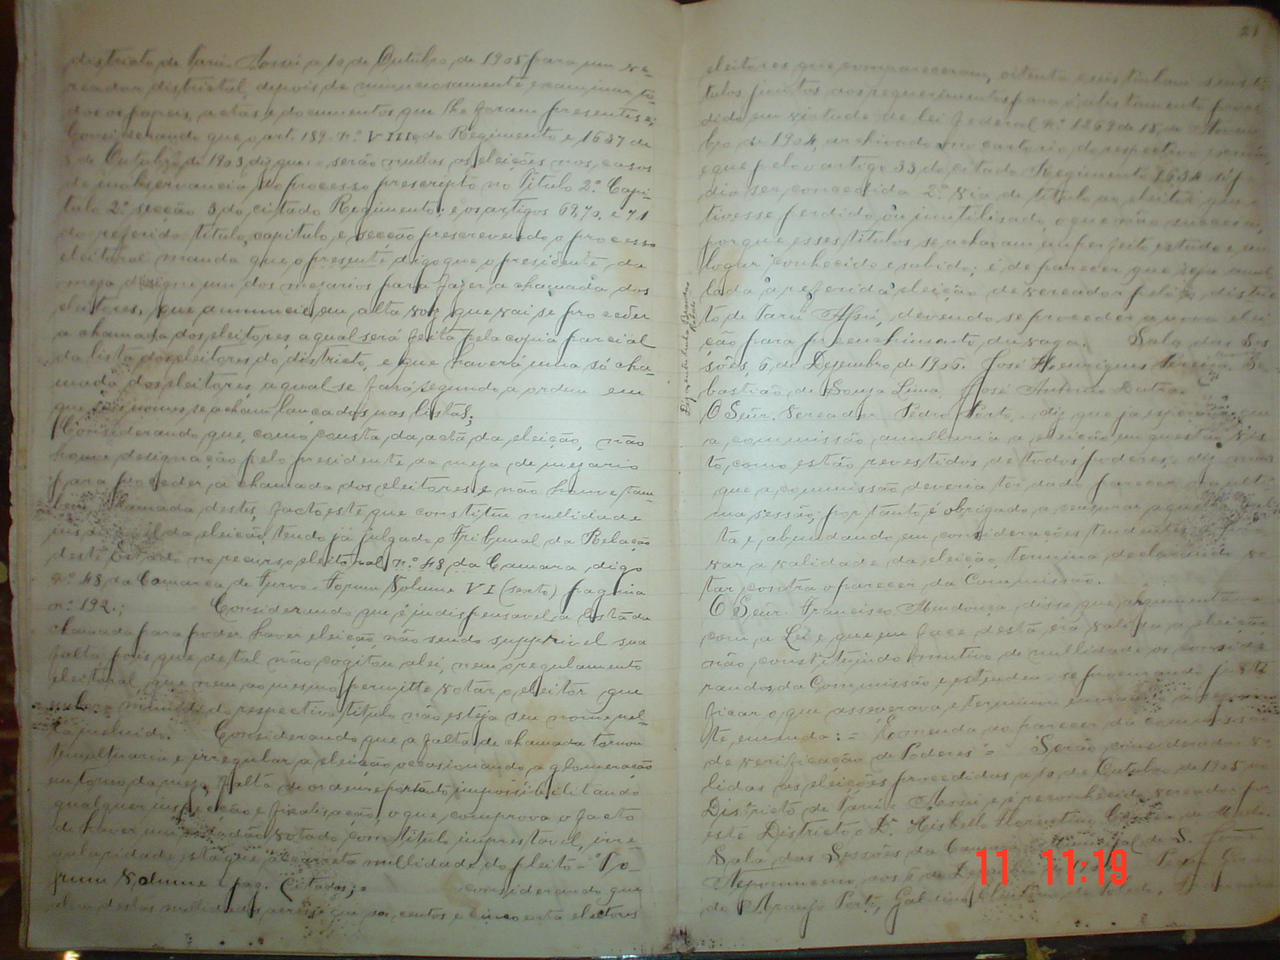 districto de Pari-Assú a 10 de Outubro de 1905 para um ve-
reador districtal, depois de minuciosamente examinar to-
dos os papeis, actas e documentos que lhe foram presentes e;
Considerando que o art. 189 nº VIII do Regimento e 1637 de
de Outubro de 1903, diz que: serão nullas as eleições nos casos
de inobservancia do processo prescripto no Titulo 2º Capi-
tulo 2º secção 3 do citado Regimento; e os artigos 69, 70, e 71
do referido titulo, capitulo, e secção prescrevendo o processo
eleitoral manda que o presente digo que o presidente da
meza designe um dos mesarios para fazer a chamada dos
eleitores, que annuncie em alta voz que vai se proceder
a chamada dos eleitores a qual será feita pela copia parcial
da lista dos eleitores do districto, e que haverá uma só cha-
mada dos eleitores a qual se fará segundo a ordem em
que os nomes se acham lançados nas listas;
Considerando que, como consta da acta da eleição, não
houve designação pelo presidente da meza de mezario
para proceder a chamada dos eleitores e não houve tam-
bem chamada destes, facto este que constitue nullidade
da eleição, tendo já julgado o Tribunal da Relação
deste Estado no recurso eleitoral nº 48 da Camara digo
nº 48 da Comarca de Turvo - Forum Volume VI (sexto) pagina
nº 192.; Considerando que é indispensavel a
chamada para poder haver eleição não sendo supprivel sua
falta pois que de tal não cogitou a lei, nem o regulamento
eleitoral, que nem ao mesmo permitte votar o eleitor que
munido do respectivo titulo não esteja seu nome
Considerando que a falta de chamada tornou
tumultuaria e irregular a eleição occasionando a glomeração
em torno da meza, falta de ordem e portanto impossibilitando
qualquer inspecção e fiscalisação, o que comprova o facto
de haver um cidadão votado com titulo imprestavel, irre-
gularidade esta que acarreta nullidade do pleito - "Fo-
rum Volume e pag. Citados"; Considerando que
alem destas nullidades accresce que so centos e cincoenta eleitores
21
eleitores que compareceram, oitenta e seis tinham seus ti-
tulos juntos aos requerimentos para o alistamento proce-
dido em virtude de lei federal nº 1269 de 15 de Novem-
bro de 1904, archivados no cartorio do respectivo escrivão,
e que pelo artigo 33 do citado Regimento 1637 só po-
dia ser concedida 2ª via de titulo ao eleitor que o
tivesse perdido ou inutilisado, o que não succedia,
porque esses titulos se achavam em perfeito estado e em
logar conhecido e sabido; é de parecer que seja annul-
lada a referida eleição de vereador pelo distric-
to de Pari Assú, devendo se proceder a nova elei-
ção para preenchimento da vaga. Sala das Ses-
sões, 6 de Dezembro de 1905. José Henriques Pereira, Se-
bastião de Souza Lima, José Antonio Dutra.
O Señr. Vereador Pedro Porto, diz que já esperava que
a commissão annullaria a eleição em questão visto
to, como estão revestidos de todos poderes, diz mais
que a commissão deveria ter dado parecer na ulti-
ma sessão; portanto é obrigado a censurar aquella
e abundando em considerações tendentes a
var a validade da eleição, termina declarando vo-
tar contra o parecer da Commissão.
O Señr. Francisco Mendonça disse que argumentava
com a Lei e que em face desta era valida a eleição
não constituindo motivo de nullidade os conside-
randos da Commissão e estendeu-se procurando justi-
ficar o que asseverava e terminou enviando a
te emenda: = Emenda ao parecer da commissão
de verificação de Poderes" = Serão consideradas va-
lidas as eleições procedidas a 10 de Outubro de 1905 no
Districto de Pari-Assú e reconhecido vereador por
este Districto o Dr. Misbello Florentino Corrêa de Mello.
Sala das Sessões da Camara Municipal de S.
Nepomuceno, aos 6 de De
de Araujo Porto, Galdino
11 11:19